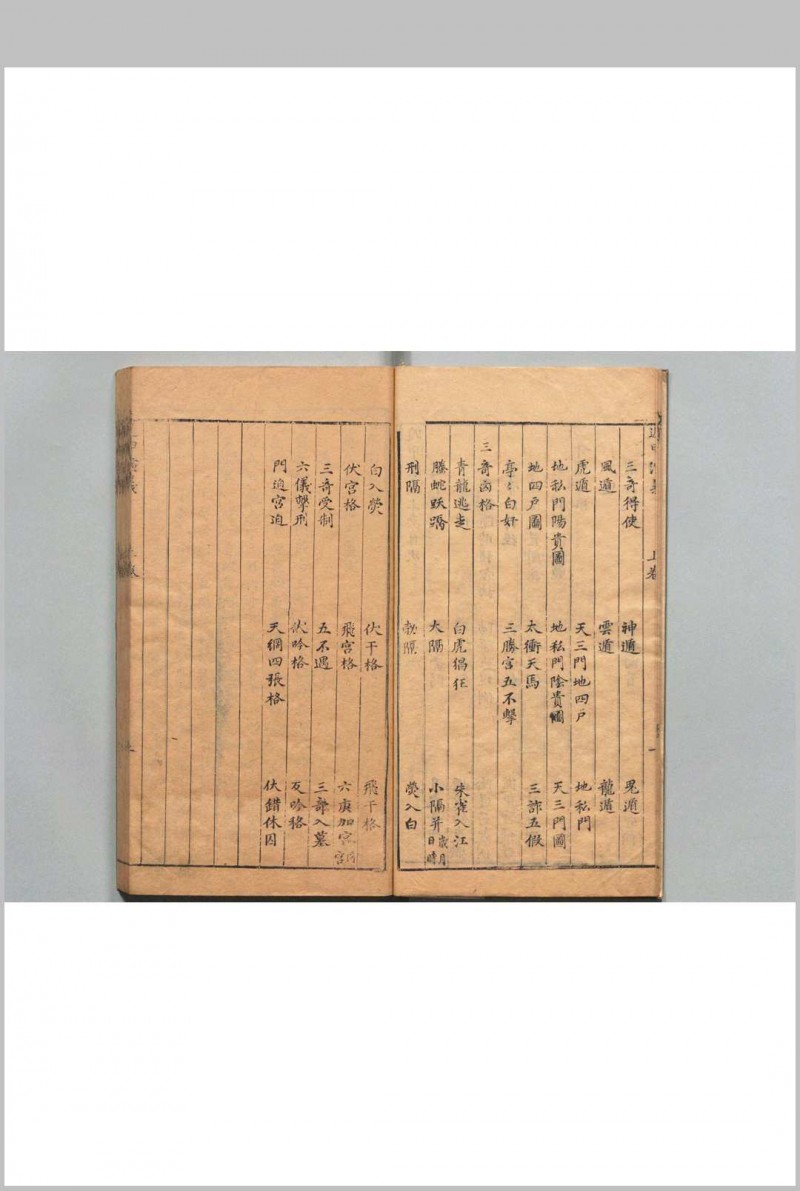 上卷
三奇得使 神遁 鬼遁
風遁 雲遁 龍遁
虎遁 天三門地四戶 地私門
地私門陽貴圖 地私門陰貴圖 天三門圖
地四戶圖 太衝天馬 三詐五假
亭〻白奸 三勝宮五不擊
三奇凶格
青龍逃走 白虎猖狂 朱雀入江
螣蛇跃蹻 大隔 小隔并歲月日時
刑隔 勃隔 熒入白
白入熒 伏干格 飛干格
伏宮格 飛宮格 六庚加宮
三奇受制 五不遇 三奇入墓
六儀擊刑 伏吟格 反吟格
門迫宮迫 天網四張格 伏錯休囚